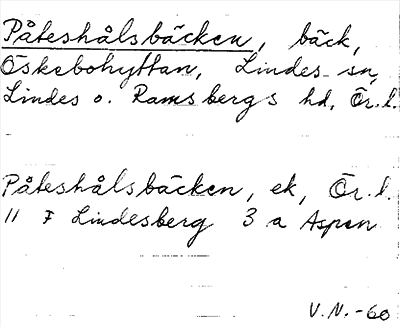 Påteshålsbäcken, bäck,
Öskebohyttan, Lindes sn,
Lindes o. Ramsbergs hd, Ör.l.
Påteshålsbäcken, ek, Ör.l.
11 F Lindesberg 3 a Aspen
V.N.-60